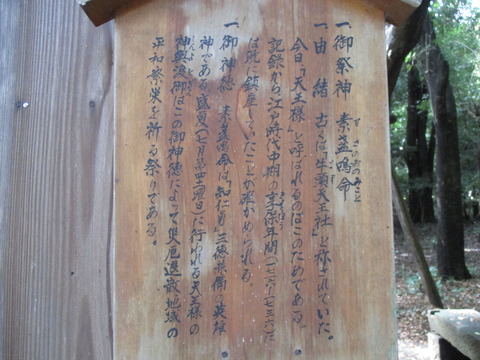 一、御祭神 素盞嗚命
すさのおのみこと
一、由緒 古くは「牛頭天王社」と称されていた。
ごず
今日「天王様」と呼ばれるのはこのためである。
記録から江戸時代中期の享保年間(一七一六〜一七三六)に
きょうほう
は既に鎮座していたことが確かめられる。
一、御神徳 素盞嗚命は「知仁勇」三徳兼備の英雄
神である。盛夏(七月第四土曜日)に行われる天王様の
神輿渡御はこの御神徳によって災厄退散地域の
しんよとぎょ
平和繁栄を祈る祭りである。